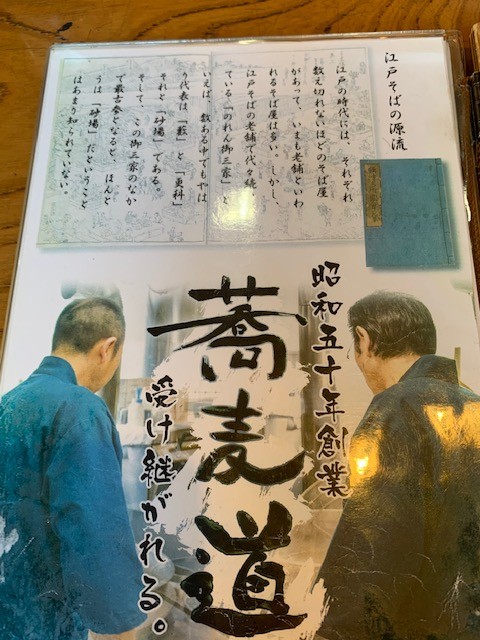 江戸そばの源流
江戸の時代には、それぞれ
数え切れないほどのそば屋
があって、いまも老舗といわ
れるそば屋は多い。しかし、
江戸そばの老舗で代々続い
ている「のれん御三家」と
いえば、数ある中でもやは
り代表は「藪」と「更科」
それと「砂場」である。
そして、この御三家のなか
で最古参となると、ほんと
うは「砂場」だということ
はあまり知られていない。
昭和五十年創業
蕎麦道
受け継がれる。